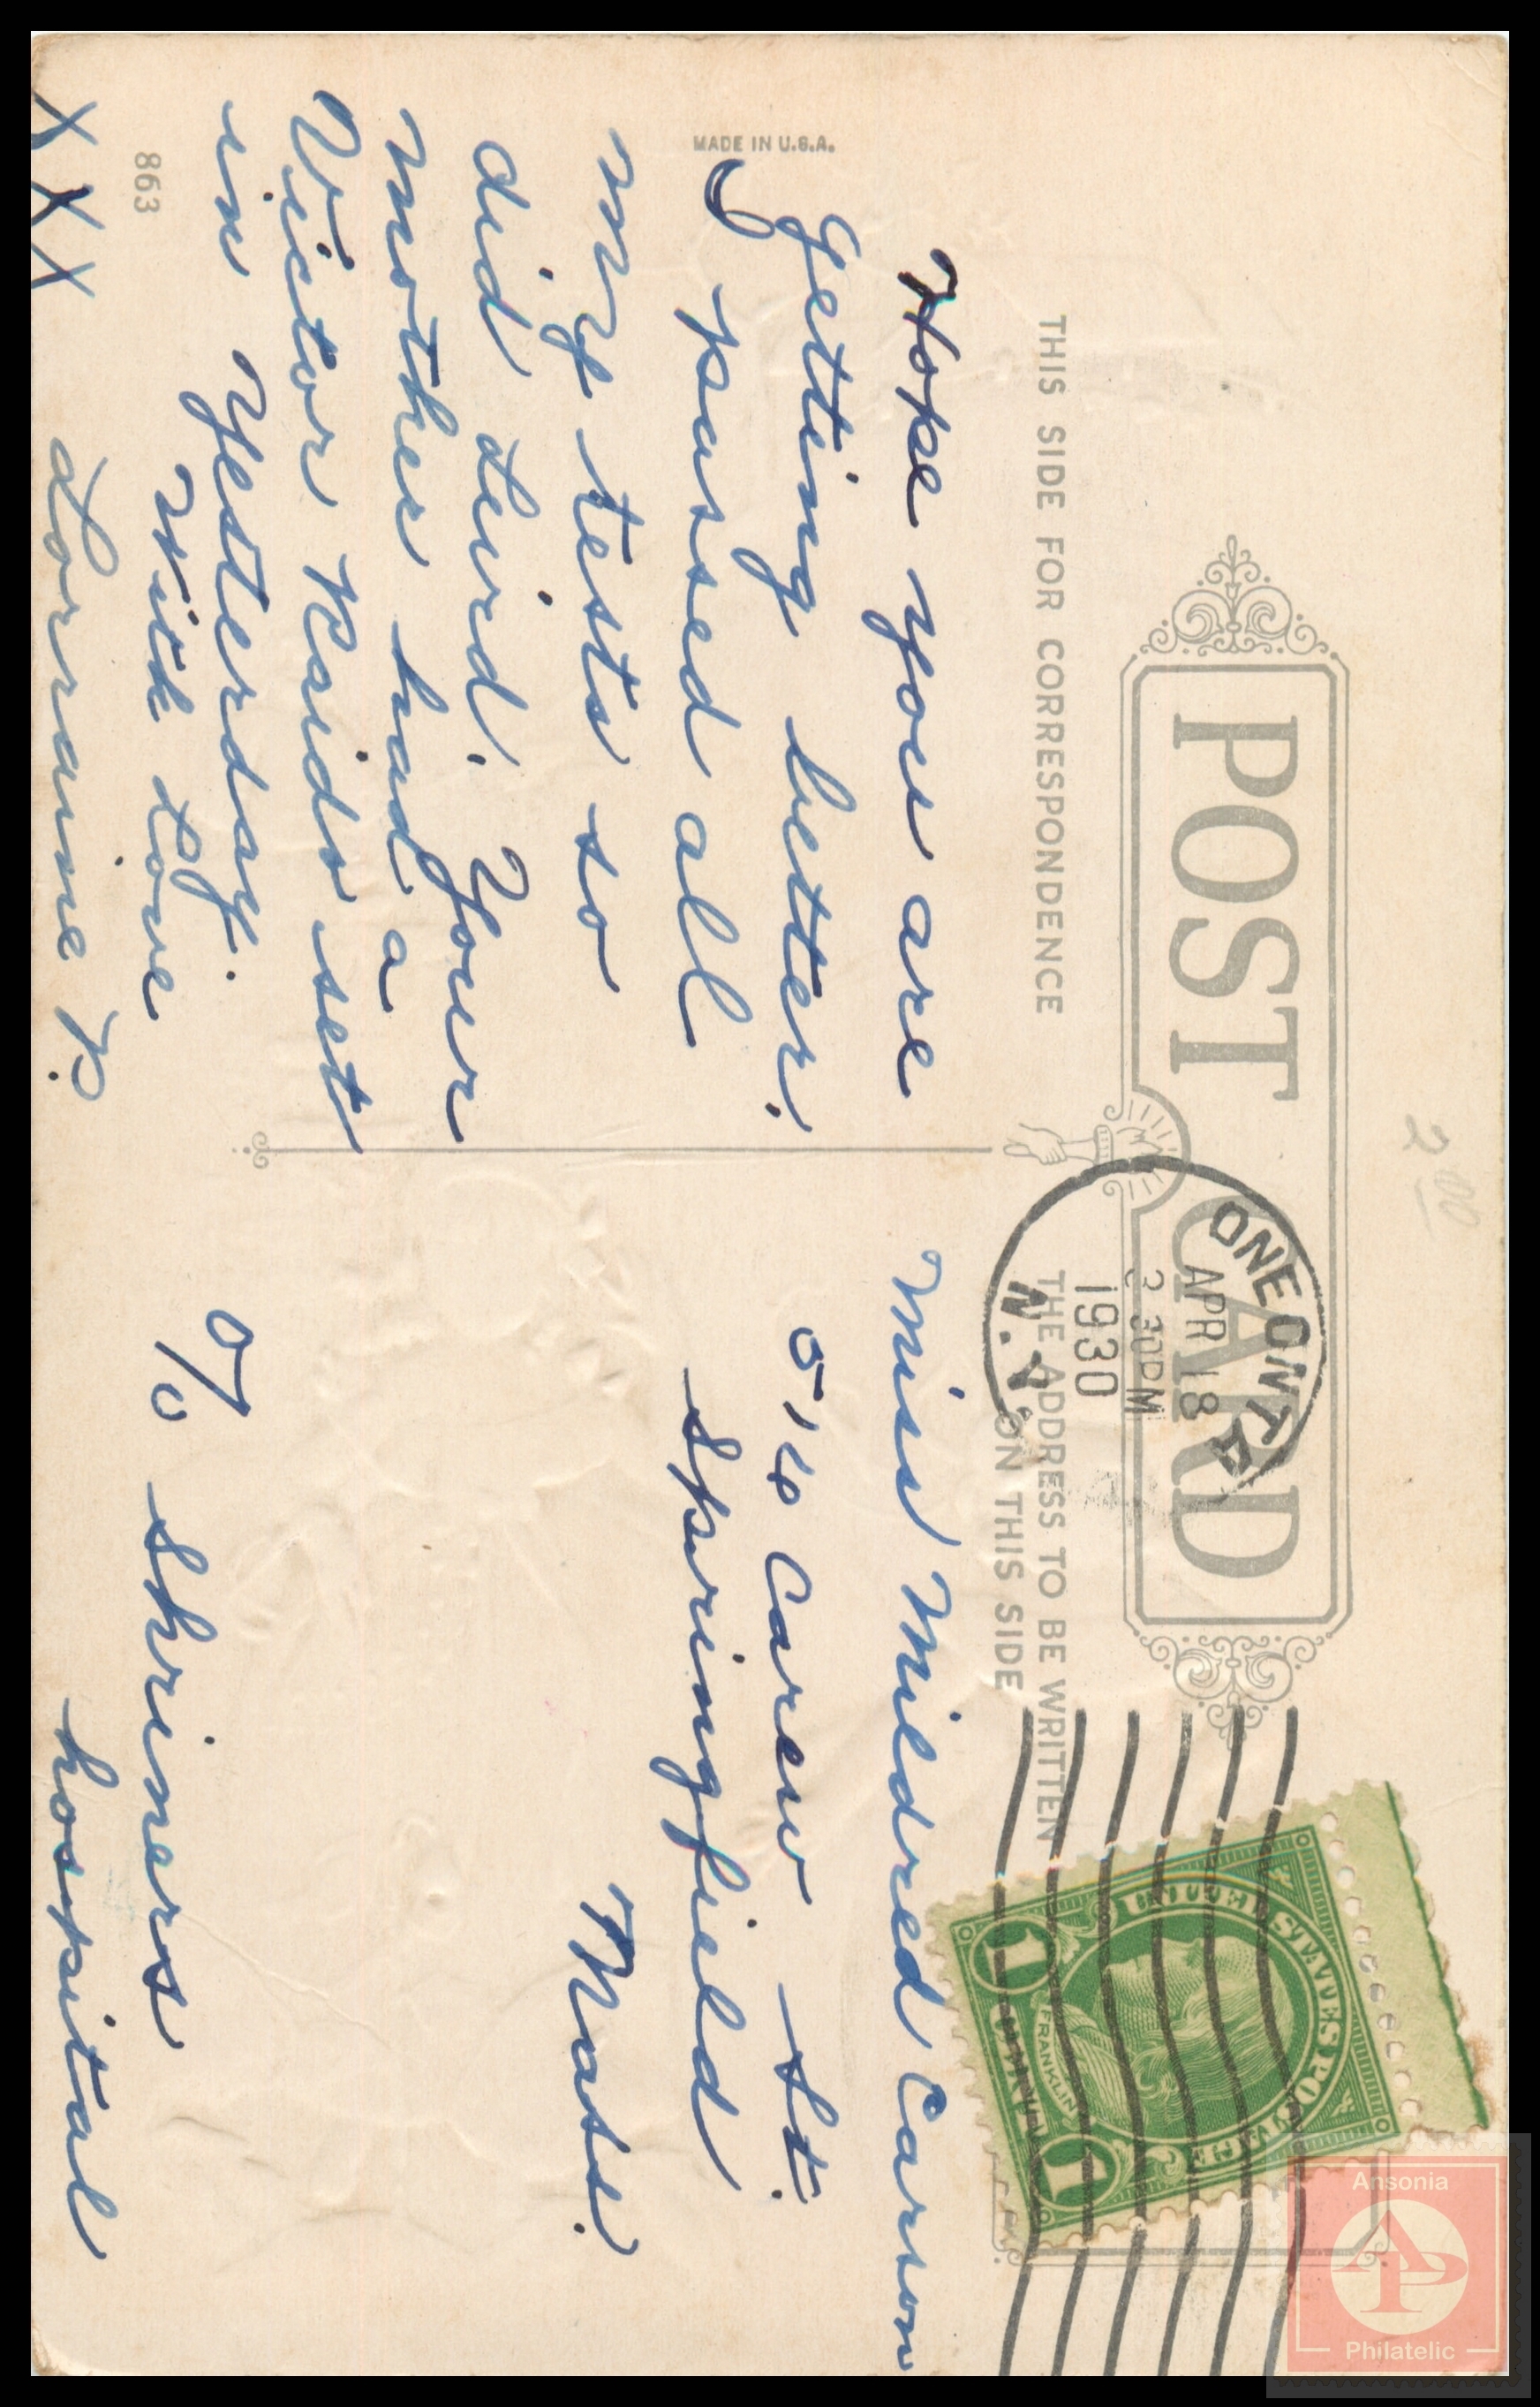 POST CARD
THIS SIDE FOR CORRESPONDENCE
THE ADDRESS TO BE WRITTEN
ON THIS SIDE
ONEONTA
APR 18
2 30PM
1930
N.Y.
UNITED STATES POSTAGE
FRANKLIN
1 CENT 1
2 00
MADE IN U.S.A.
863
Hope you are
getting better.
I passed all
my tests so
did
mother had a Your
Victor Raido set
in Yesterday.
With Love
Lorraine P.
X X X
Miss Mildred Carson
516 Carew St.
Springfield
Mass.
% Shriners
hospital
Ansonia
AP
Philatelic